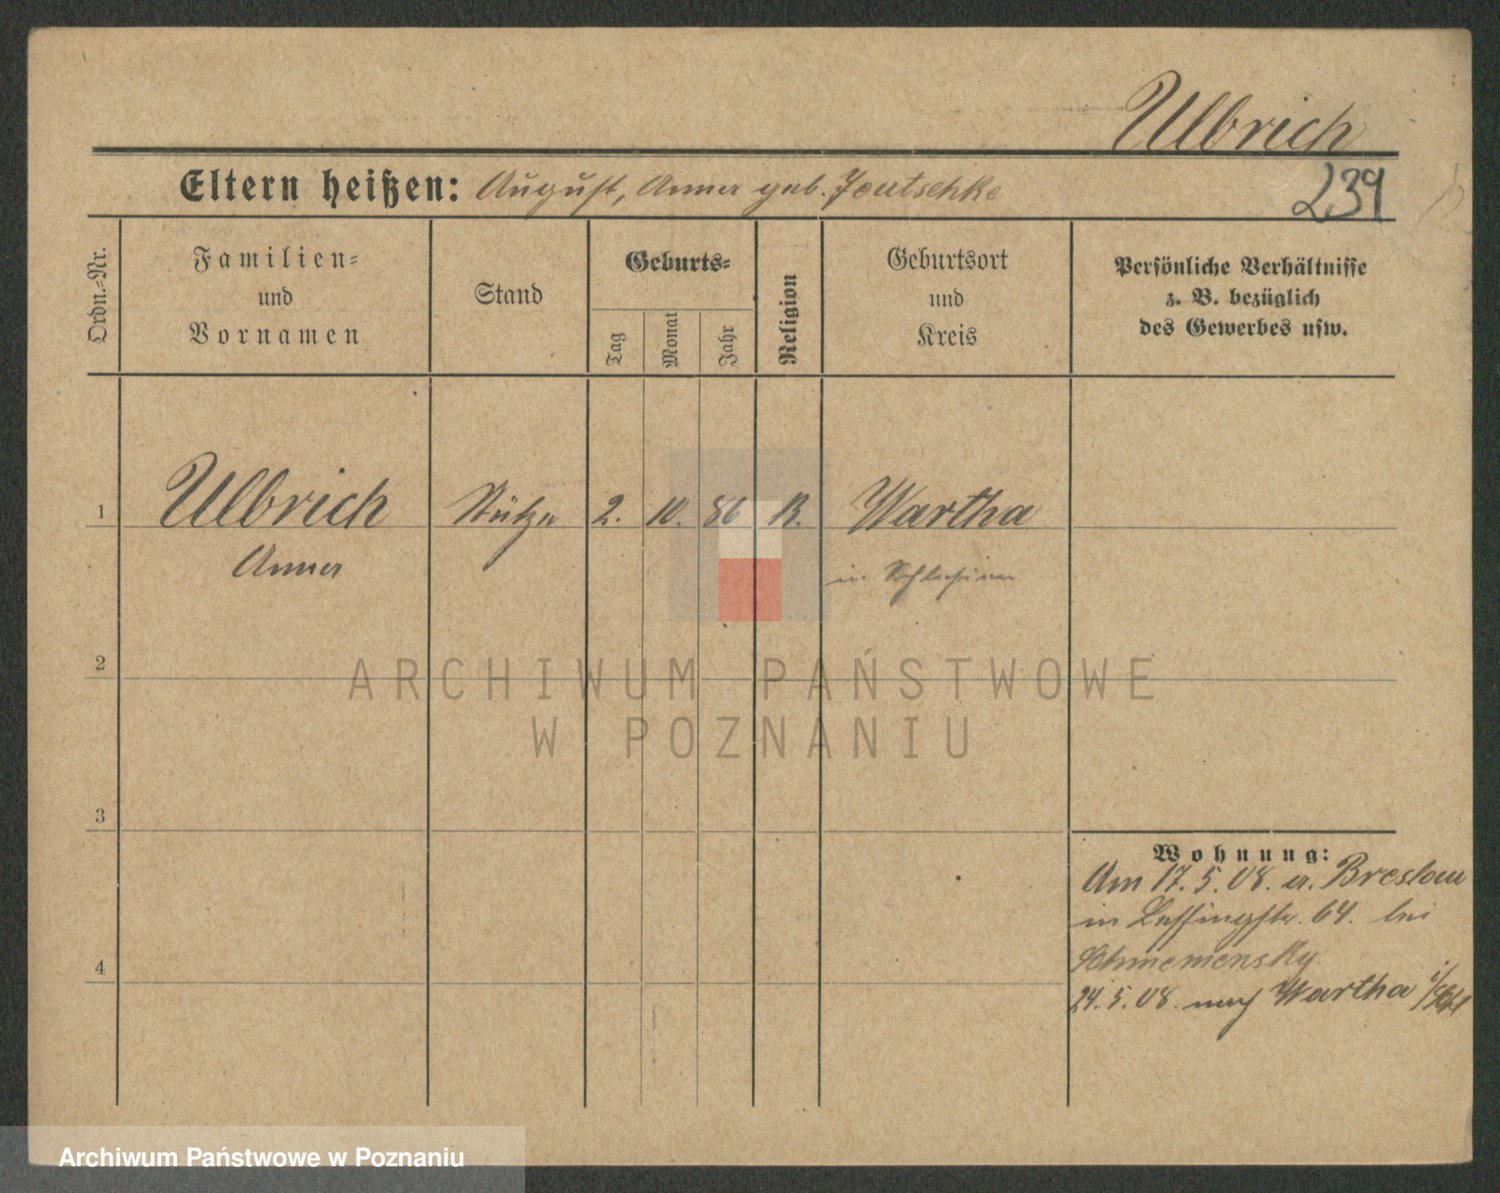 Ulbrich
Eltern heißen: August, Anna geb. Jeutschke
239
Ordn.-Nr.
Familien-
und
Vornamen
Stand
Geburts-
Tag
Monat
Jahr
Religion
Geburtsort
und
Kreis
Persönliche Verhältnisse
z. B. bezüglich
des Gewerbes usw.
1
Ulbrich
Stütze
2.
10.
86
K.
Wartha
Anna
in Schlesien
2
ARCHIWUM PAŃSTWOWE
W POZNANIU
3
Wohnung:
Am 17. 5. 08. a. Breslau
in Lessingstr. 64. bei
24. 5. 08. nach Wartha i/Schl
4
Archiwum Państwowe w Poznaniu